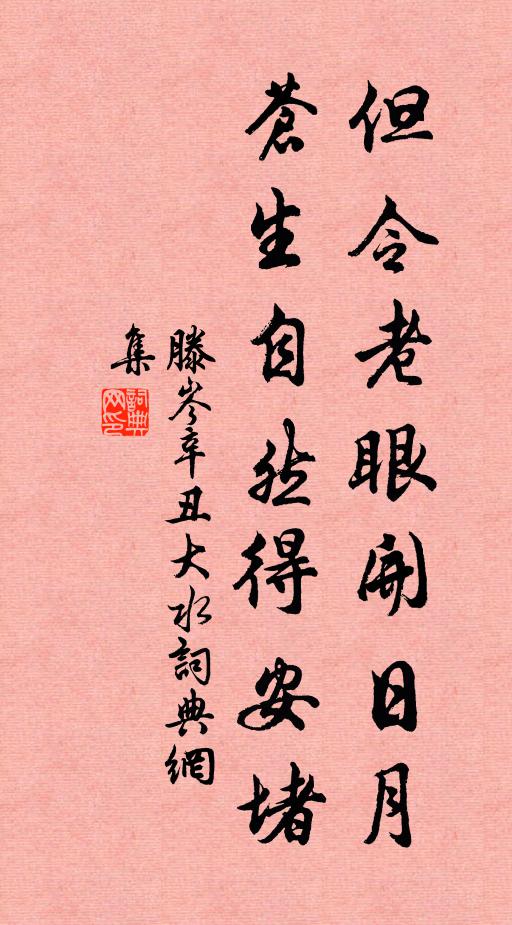 但令老眼開日月
蒼生自然得安堵
滕岑辛丑大水詞典網
集
詞典網印